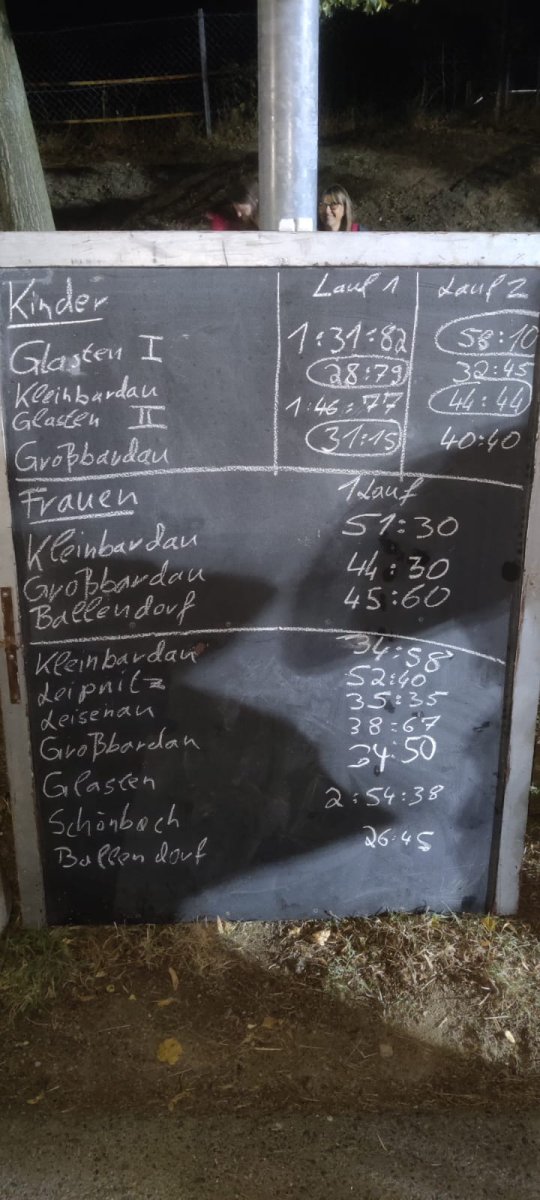 Kinder Lauf 1 Lauf 2
Glasten I 1:31:82 58:10
Kleinbardau 28:79 32:45
Glasten II 1:46:77 44:44
Großbardau 31:15 40:40
Frauen 1 Lauf
Kleinbardau 51:30
Großbardau 44:30
Ballendorf 45:60
Kleinbardau 34:58
Leipnitz 52:40
Leisenau 35:35
Großbardau 38:67
Glasten 34:50
Schönbach 2:54:38
Ballendorf 26:45